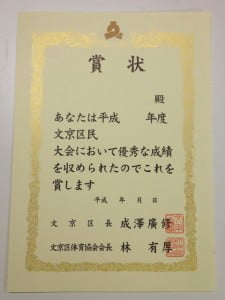 賞状
殿
あなたは平成 年度
文京区民
大会において優秀な成績
を収められたのでこれを
賞します
平成 年 月 日
文京区長 成澤廣修
文京区体育協会会長 林有厚